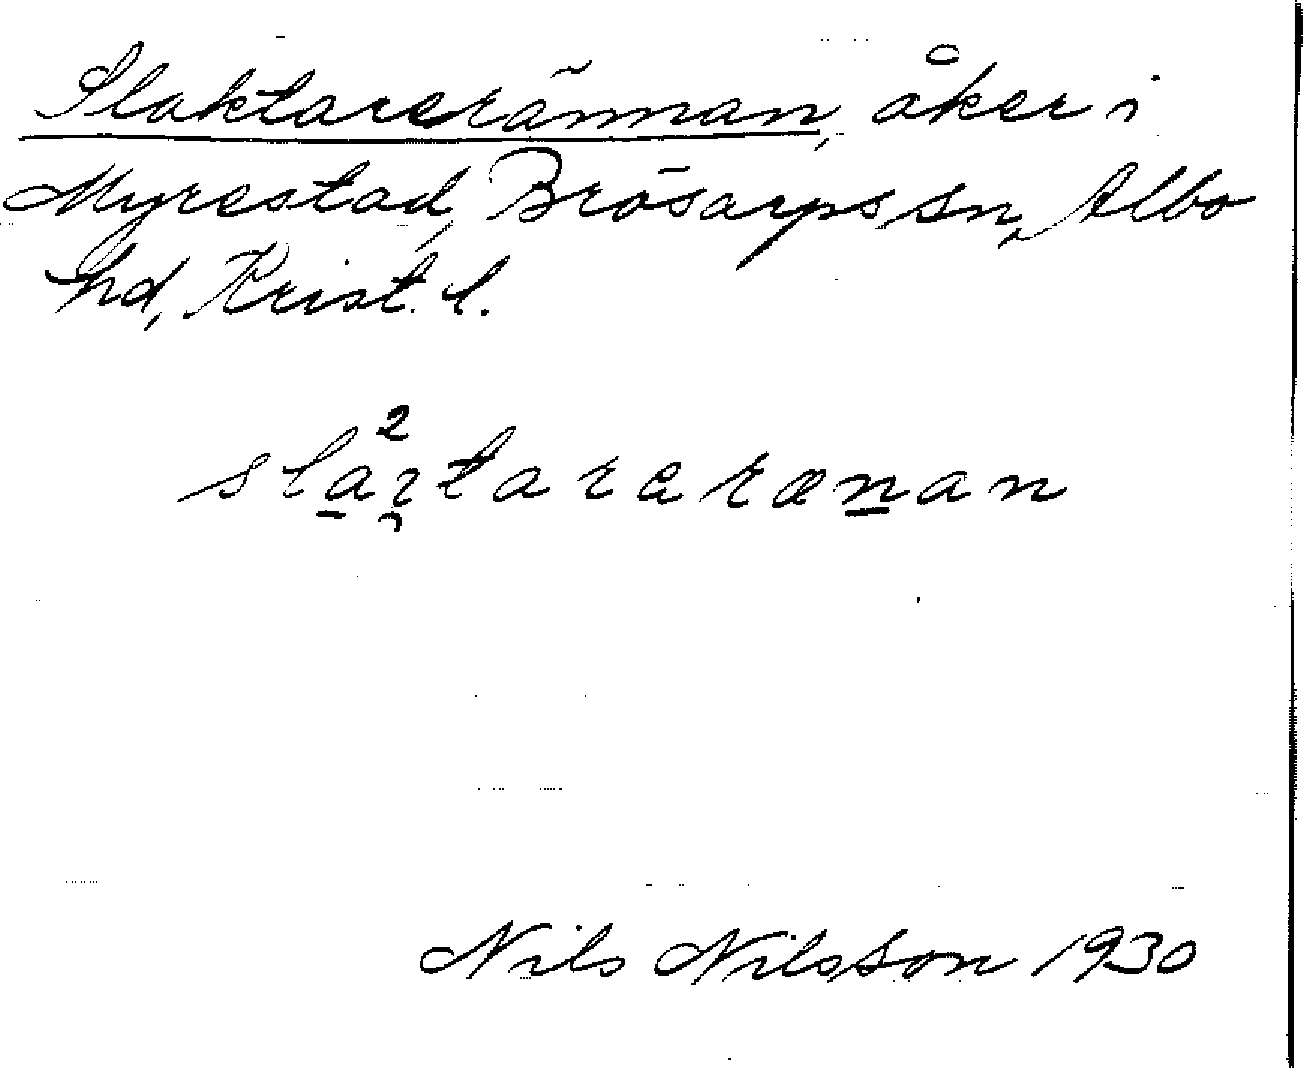 Slaktarerännan, åker i
Myrestad, Brösarps sn, Albo
hd, Krist. l.
Nils Nilsson 1930